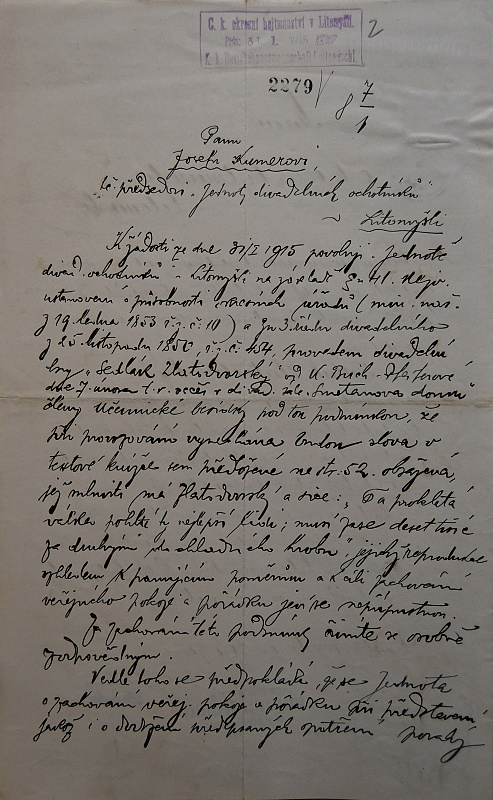 C. k. okresní hejtmanství v Litomyšli.
1915
2
2279
8 7/1
Panu
Josefu Kumerovi,
předsedovi „Jednoty divadelních ochotníků“
v Litomyšli
K žádosti ze dne 31/I 1915 povoluji „Jednotě
divad. ochotníků“ v Litomyšli na základě
ustanovení o působnosti úřadů (min. nař.
z 19. ledna 1853 ř.z. č. 10) a divadelního
z 25. listopadu 1850, ř.z. č. 454, provedení divadelní
hry „Sedlák Zlatodvorský“ od K. Birch-Pfeiffrové
dne 7. února t. r. večer v divad. sále „Smetanova domu“
Učednické besídky pod tou podmínkou, že
při provozování vynechána budou slova v
textové knížce sem předložené na str. 52. obsažená,
jež mluviti má Zlatodvorský a sice: „Ta prokletá
válka pohltí ty nejlepší lidi; musí zase deset tisíc
za druhými do chladného hrobu“, jejichž reprodukce
vzhledem k panujícím poměrům a k cíli zachování
veřejného pokoje a pořádku jeví se nepřípustnou.
Za zachování této podmínky činíte se osobně
zodpovědným.
Vedle toho se předpokládá, že se Jednota
o zachování veřej. pokoje a pořádku při představení
jakož i o dodržení předepsaných opatření